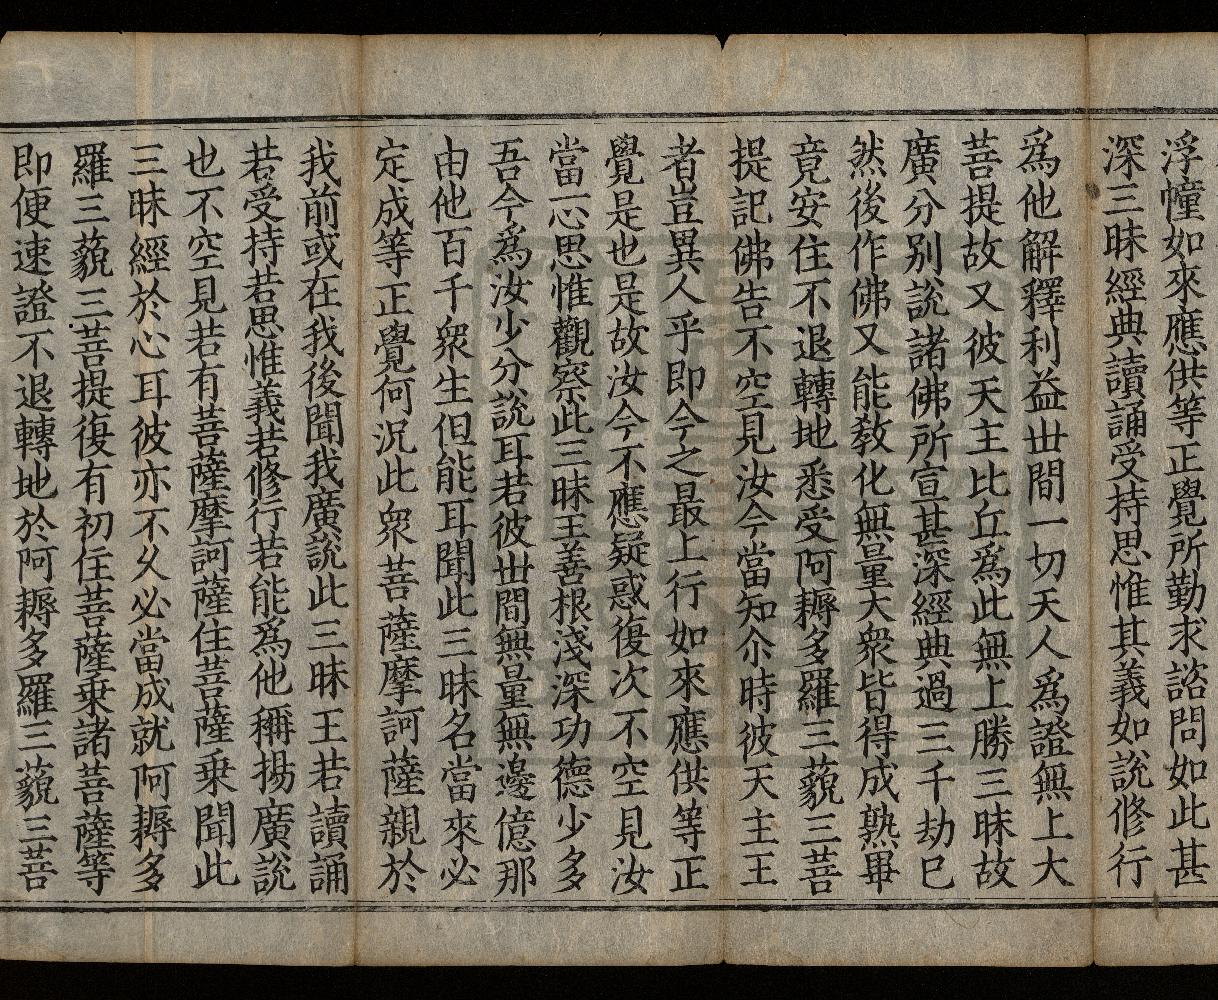 浮幢如來應供等正覺所勤求諮問如此甚
深三昧經典讀誦受持思惟其義如說修行
爲他解釋利益世間一切天人爲證無上大
菩提故又彼天主比丘爲此無上勝三昧故
廣分別說諸佛所宣甚深經典過三千劫已
然後作佛又能敎化無量大衆皆得成熟畢
竟安住不退轉地悉受阿耨多羅三藐三菩
提記佛告不空見汝今當知尒時彼天主王
者豈異人乎即今之最上行如來應供等正
覺是也是故汝今不應疑惑復次不空見汝
當一心思惟觀察此三昧王善根淺深功德少多
吾今爲汝少分說耳若彼世間無量無邊億那
由他百千衆生但能耳聞此三昧名當來必
定成等正覺何況此衆菩薩摩訶薩親於
我前或在我後聞我廣說此三昧王若讀誦
若受持若思惟義若修行若能爲他稱揚廣說
也不空見若有菩薩摩訶薩住菩薩乗聞此
三昧經於心耳彼亦不久必當成就阿耨多
羅三藐三菩提復有初住菩薩乗諸菩薩等
即便速證不退轉地於阿耨多羅三藐三菩